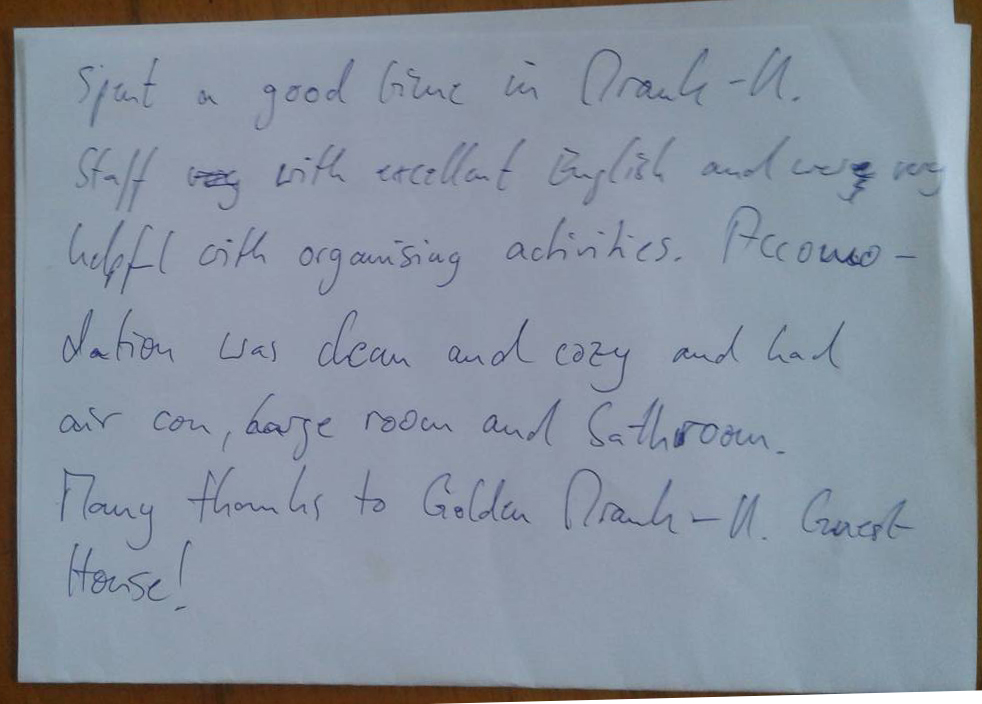 Spent a good time in Mrauk-U.
Staff with excellent English and were very
helpfl with organising activities. Accomo-
dation was clean and cozy and had
air con, large room and bathroom.
Many thanks to Golden Mrauk-U. Guest
House!